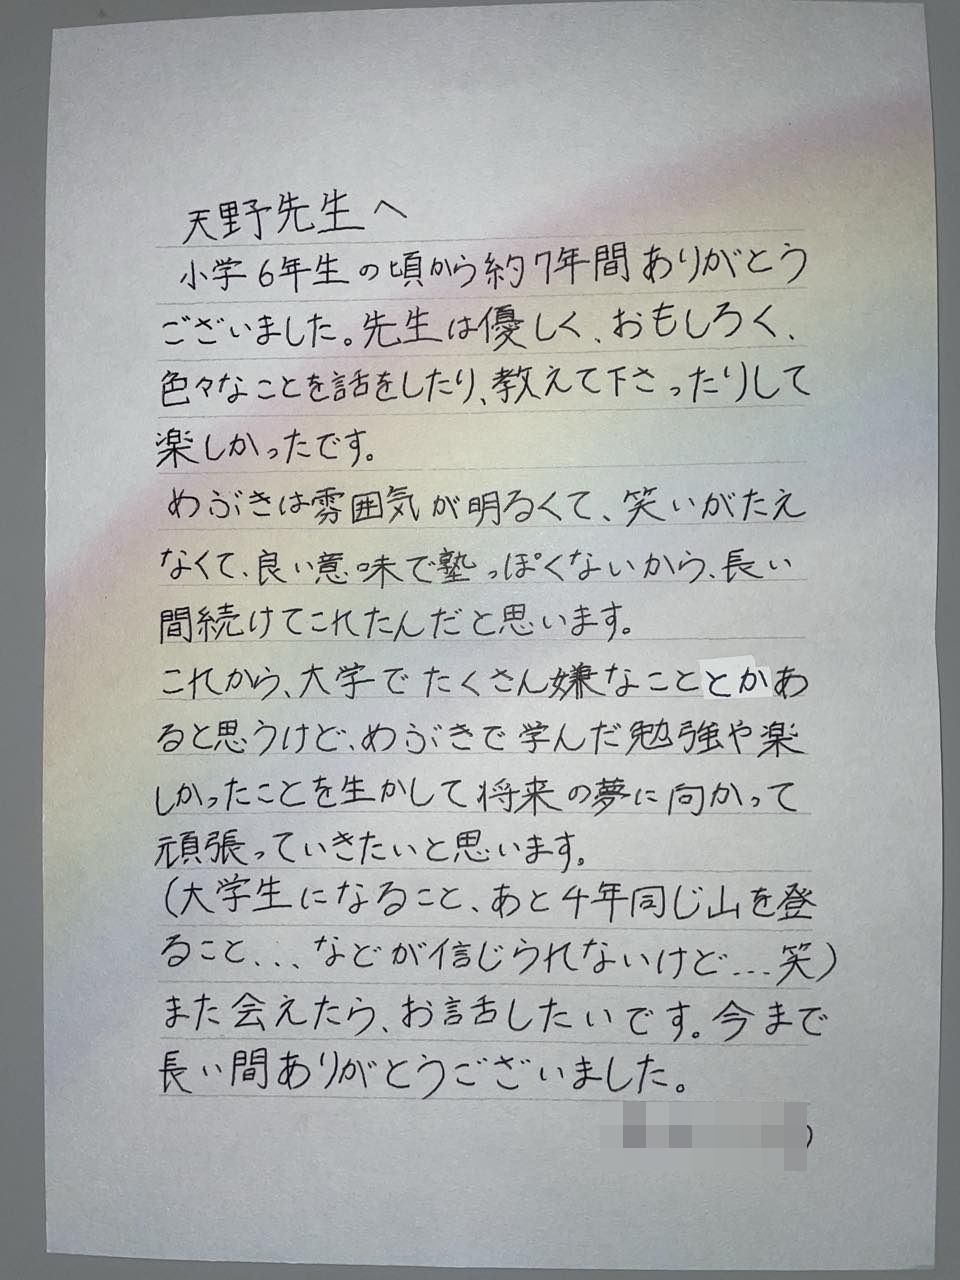 天野先生へ
小学6年生の頃から約7年間ありがとう
ございました。先生は優しく、おもしろく、
色々なことを話をしたり、教えて下さったりして
楽しかったです。
めぶきは雰囲気が明るくて、笑いがたえ
なくて、良い意味で塾っぽくないから、長い
間続けてこれたんだと思います。
これから、大学でたくさん嫌なこととかあ
ると思うけど、めぶきで学んだ勉強や楽
しかったことを生かして将来の夢に向かって
頑張っていきたいと思います。
(大学生になること、あと4年同じ山を登
ること...などが信じられないけど...笑)
また会えたら、お話したいです。今まで
長い間ありがとうございました。
)